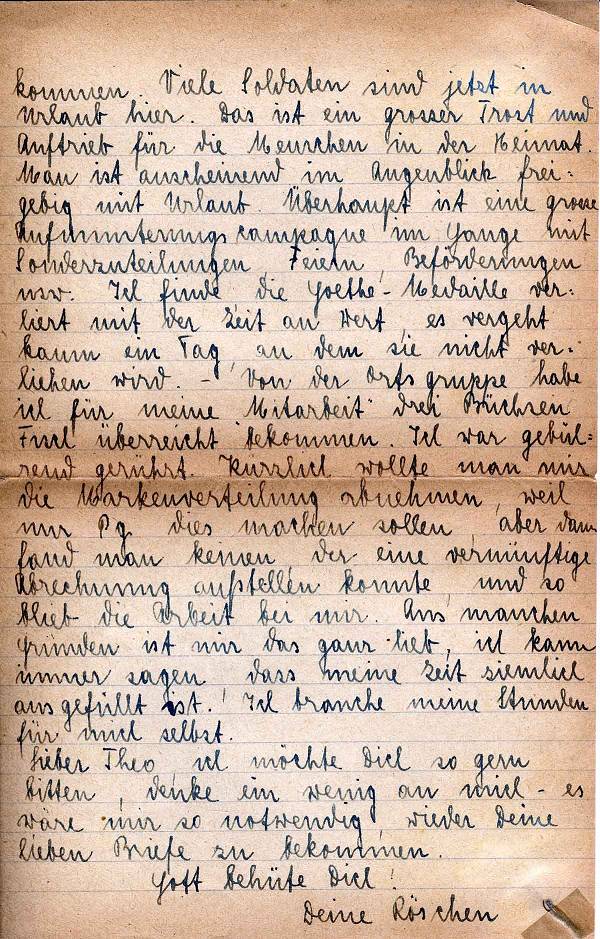 kommen. Viele Soldaten sind jetzt in
Urlaub hier. Das ist ein grosser Trost und
Auftrieb für die Menschen in der Heimat.
Man ist anscheinend im Augenblick frei-
gebig mit Urlaub. Überhaupt ist eine grosse
Aufmunterungscampagne im Gange mit
Sonderzuteilungen, Feiern, Beförderungen
usw. Ich finde, die Goethe-Medaille ver-
liert mit der Zeit an Wert, es vergeht
kaum ein Tag, an dem sie nicht ver-
liehen wird. - Von der Ortsgruppe habe
ich für meine "Mitarbeit" drei Büchsen
Fisch überreicht bekommen. Ich war gebüh-
rend gerührt. Kürzlich wollte man mir
die Markenverteilung abnehmen, weil
nur Pg. dies machen sollen, aber dann
fand man keinen, der eine vernünftige
Abrechnung aufstellen konnte, und so
blieb die Arbeit bei mir. Aus manchen
Gründen ist mir das ganz lieb, ich kann
immer sagen, dass meine Zeit ziemlich
ausgefüllt ist! Ich brauche meine Stunden
für mich selbst.
Lieber Theo, ich möchte Dich so gern
bitten, denke ein wenig an mich - es
wäre mir so notwendig, wieder Deine
lieben Briefe zu bekommen.
Gott behüte Dich!
Deine Röschen